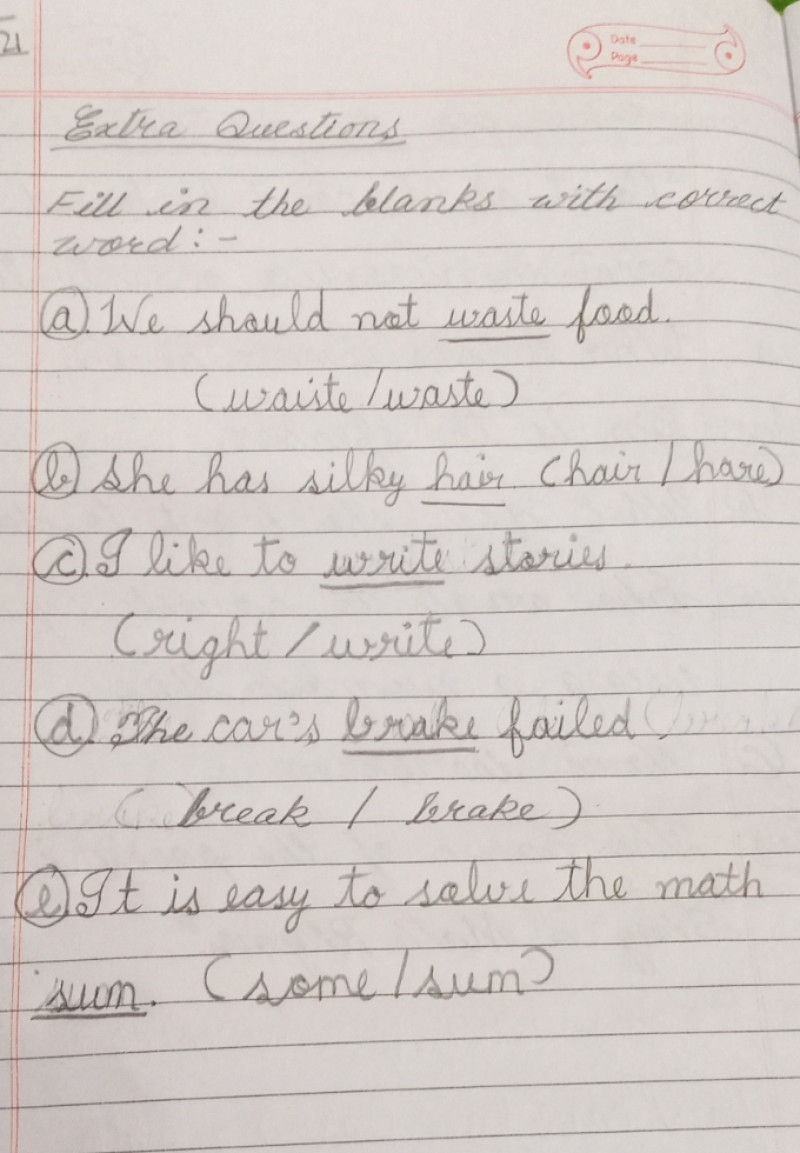 21
Date
Page
Extra Questions
Fill in the blanks with correct
word:-
(a). We should not waste food.
(waiste/waste)
(b) She has silky hair (hair/hare)
(c). I like to write stories.
(right/write)
(d) The car's brake failed
(break / brake)
(e) It is easy to solve the math
sum. (some/sum)